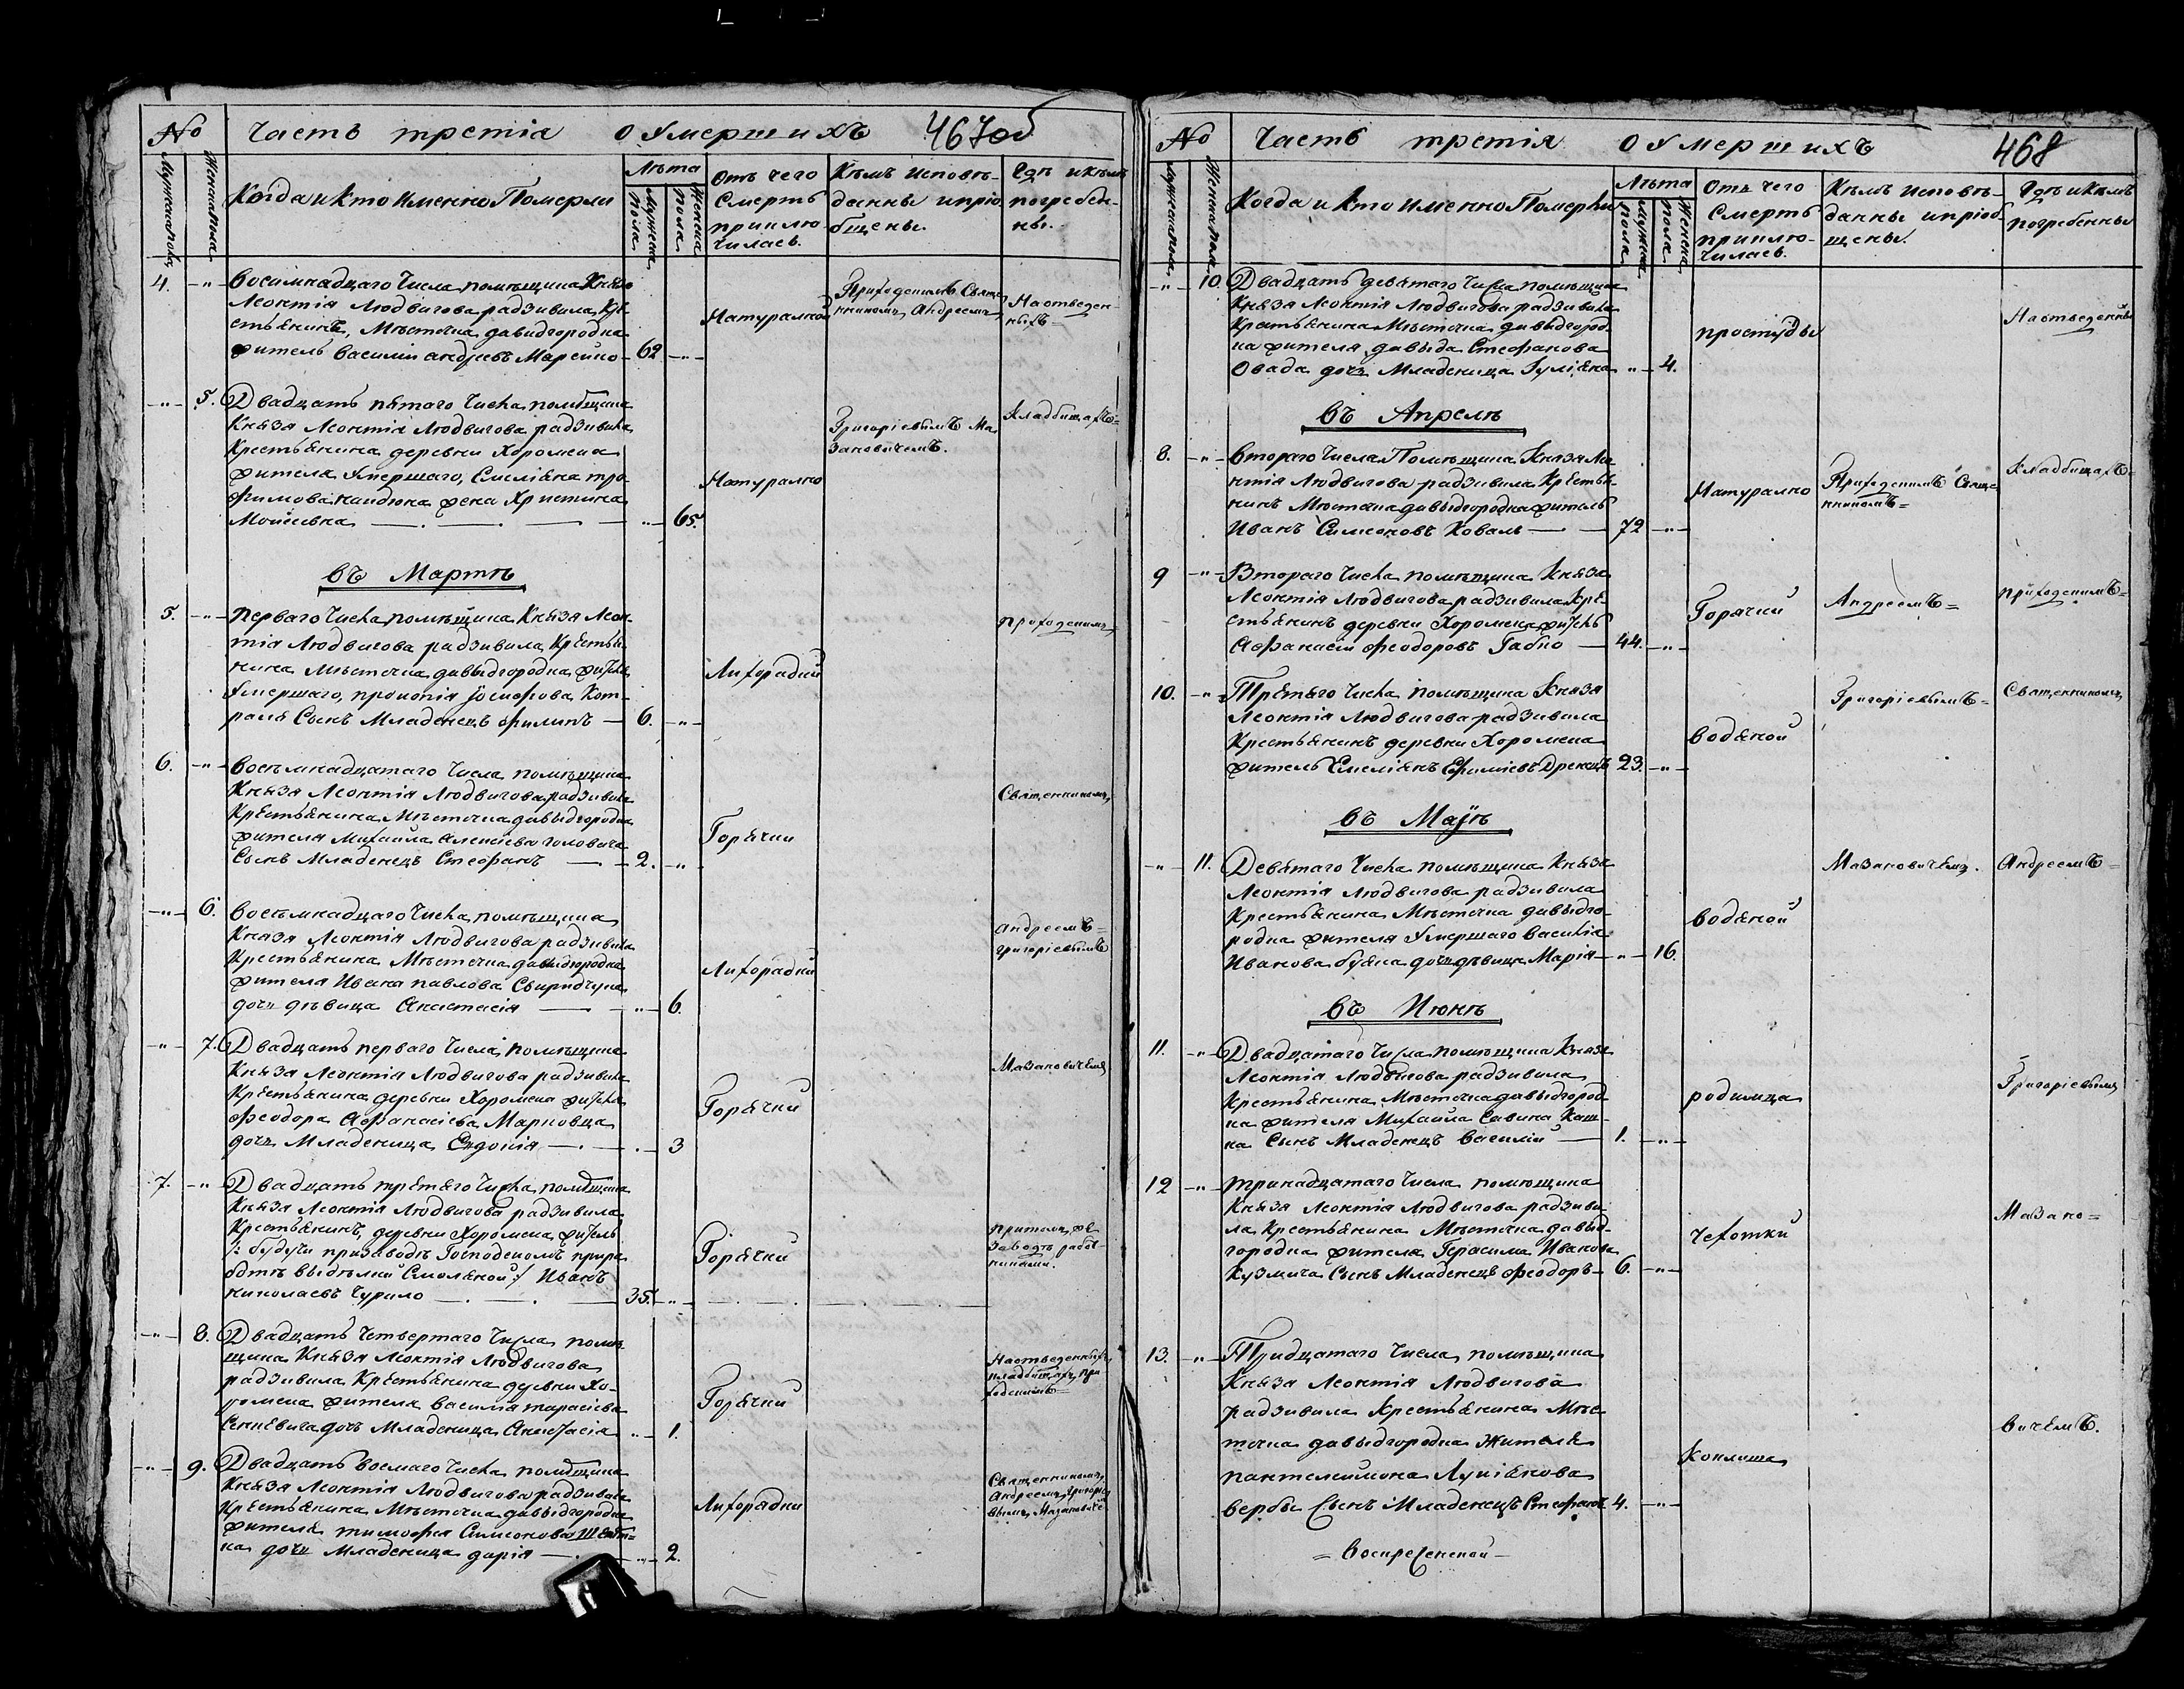 No Часть третія о Умершихъ 467об
Мужеска пола
Женска пола
Когда и кто Именно Померли
Лѣта
Мужеска пола
Женска пола
Отъ чего
Смерть
приклю
чилась.
Кѣмъ исповѣ-
данны и пріо
бщены.
Гдѣ и кѣмъ
погребен-
ны.
4. -"- Восимнадцаго Числа помѣщика Князя
Леонтія Людвигова радзивила, Кре
стьянинъ, Мѣстечка давыдгородка
житель Василій андреевъ Марейко - 62 -"-
Натурално
Приходскимъ Свяще
нникомъ Андреемъ
На отведен-
ныхъ =
-"- 5. Двадцать пятаго Числа помѣщика
Князя Леонтія Людвигова радзивила
Крестьянина деревни Хоромска
жителя Умершаго, Емеліяна тро
фимова жена Христина
Моисеевна -"- 65.
Натурално
Григоріевымъ Ма
зановичемъ.
Кладбищахъ =
въ Мартѣ
5. -"- перваго Числа помѣщика Князя Леон-
тія Людвигова радзивила Крестья-
нина Мѣстечка давыдгородка жителя
Умершаго, прокопія Іосифова Кот-
раля Сынъ Младенецъ филипъ - 6. -"-
Лихорадки
приходскимъ
6. -"- восьмнадцатаго Числа помѣщика
Князя Леонтія Людвигова радзивила
Крестьянина Мѣстечка давыдгородка
жителя Михаила Алексіева головача
Сынъ Младенецъ Стефанъ - 2. -"-
Горячки
Священникомъ
-"- 6. восьмнадцаго Числа помѣщика
Князя Леонтія Людвигова радзивила
Крестьянина Мѣстечка давыдгородка
жителя Ивана павлова Свиридчука
дочь дѣвица Анастасія -"- 6.
Лихорадки
Андреемъ =
григоріевымъ
-"- 7. Двадцать перваго Числа помѣщика
Князя Леонтія Людвигова радзивила
Крестьянина деревни Хоромска жителя
феодора Афанасіева Марковца
дочь Младеница Евдокія - 3
Горячки
Мазановичемъ
7. -"- Двадцать третяго Числа помѣщика
Князя Леонтія Людвигова радзивила
Крестьянинъ, деревни Хоромска житель
/: будучи при заводѣ Господскомъ при ра
ботѣ выделки Смоляной :/ Иванъ
николаевъ Чурило - 35. -"-
Горячки
при томъ же
заводѣ работ-
никами.
-"- 8. Двадцать Четвертаго Числа помѣ
щика Князя Леонтія Людвигова
радзивила Крестьянина деревни Хо-
ромска жителя василія тарасіева
Сенкевича дочь Младеница Анастасія -"- 1.
Горячки
На отведенныхъ
кладбищахъ при
ходскимъ =
-"- 9. Двадцать восмаго Числа помѣщика
Князя Леонтія Людвигова радзивила
Крестьянина Мѣстечка давыдгородка
жителя тимофея Симеонова
ка дочь Младеница дарія -"- 2.
Лихорадки
Священникомъ
Андреемъ Григоріе
вымъ Мазановиче
No Часть третія о Умершихъ 468
Мужеска пола
Женска пола
Когда и кто Именно Померли
Лѣта
Мужеска пола
Женска пола
Отъ чего
Смерть
приклю-
чилась.
Кѣмъ исповѣ-
данны и пріоб
щены.
Гдѣ и кѣмъ
погребенны
-"- 10. Двадцать девятаго Числа помѣщика
Князя Леонтія Людвигова радзивила
Крестьянина Мѣстечка давыдгород
ка жителя давыда Стефанова
Овада дочь Младеница Іуліяна -"- 4.
простуды
На отведенныхъ
въ Апрелѣ
8. -"- втораго Числа Помѣщика Князя Лео
нтія Людвигова радзивила Крестья
нинъ Мѣстечка давыдгородка житель
Иванъ Симеоновъ Коваль - 72 -"-
Натурално
Приходскимъ Свяще
нникомъ =
Кладбищахъ =
9 -"- Втораго Числа помѣщика Князя
Леонтія Людвигова радзивила Кре
стьянинъ деревни Хоромска житель
Афанасій феодоровъ Габко - 44. -"-
Горячки
Андреемъ =
приходскимъ =
10. -"- Третяго Числа помѣщика Князя
Леонтія Людвигова радзивила
Крестьянинъ деревни Хоромска
житель Емеліянъ Ефиміевъ Дрекецъ 23. -"-
водяной
Григоріевымъ =
Священникомъ
въ Маѣ
-"- 11. Девятаго Числа помѣщика Князя
Леонтія Людвигова радзивила
Крестьянина Мѣстечка давыдго-
родка жителя Умершаго Василія
Иванова буяка дочь дѣвица Марія -"- 16.
водяной
Мазановичемъ.
Андреемъ =
въ Июнѣ
11. -"- Двадцатаго Числа помѣщика Князя
Леонтія Людвигова радзивила
Крестьянина Мѣстечка давыдгород
ка жителя Михаила Савина Каш-
ка Сынъ Младенецъ Василій - 1. -"-
родимца
Григоріевымъ
12 -"- тринадцатаго Числа помѣщика
Князя Леонтія Людвигова радзиви
ла Крестьянина Мѣстечка давыд-
городка жителя Герасима Иванова
Кузмича Сынъ Младенецъ феодоръ - 6. -"-
чехотки
Мазано =
13. -"- Тридцатаго Числа помѣщика
Князя Леонтія Людвигова
радзивила Крестьянина Мѣс
течка давыдгородка Жителя
пантелеймона Лукіянова
вербы Сынъ Младенецъ Стефанъ 4. -"-
Коклюша
вичемъ.
= Воскресенской -